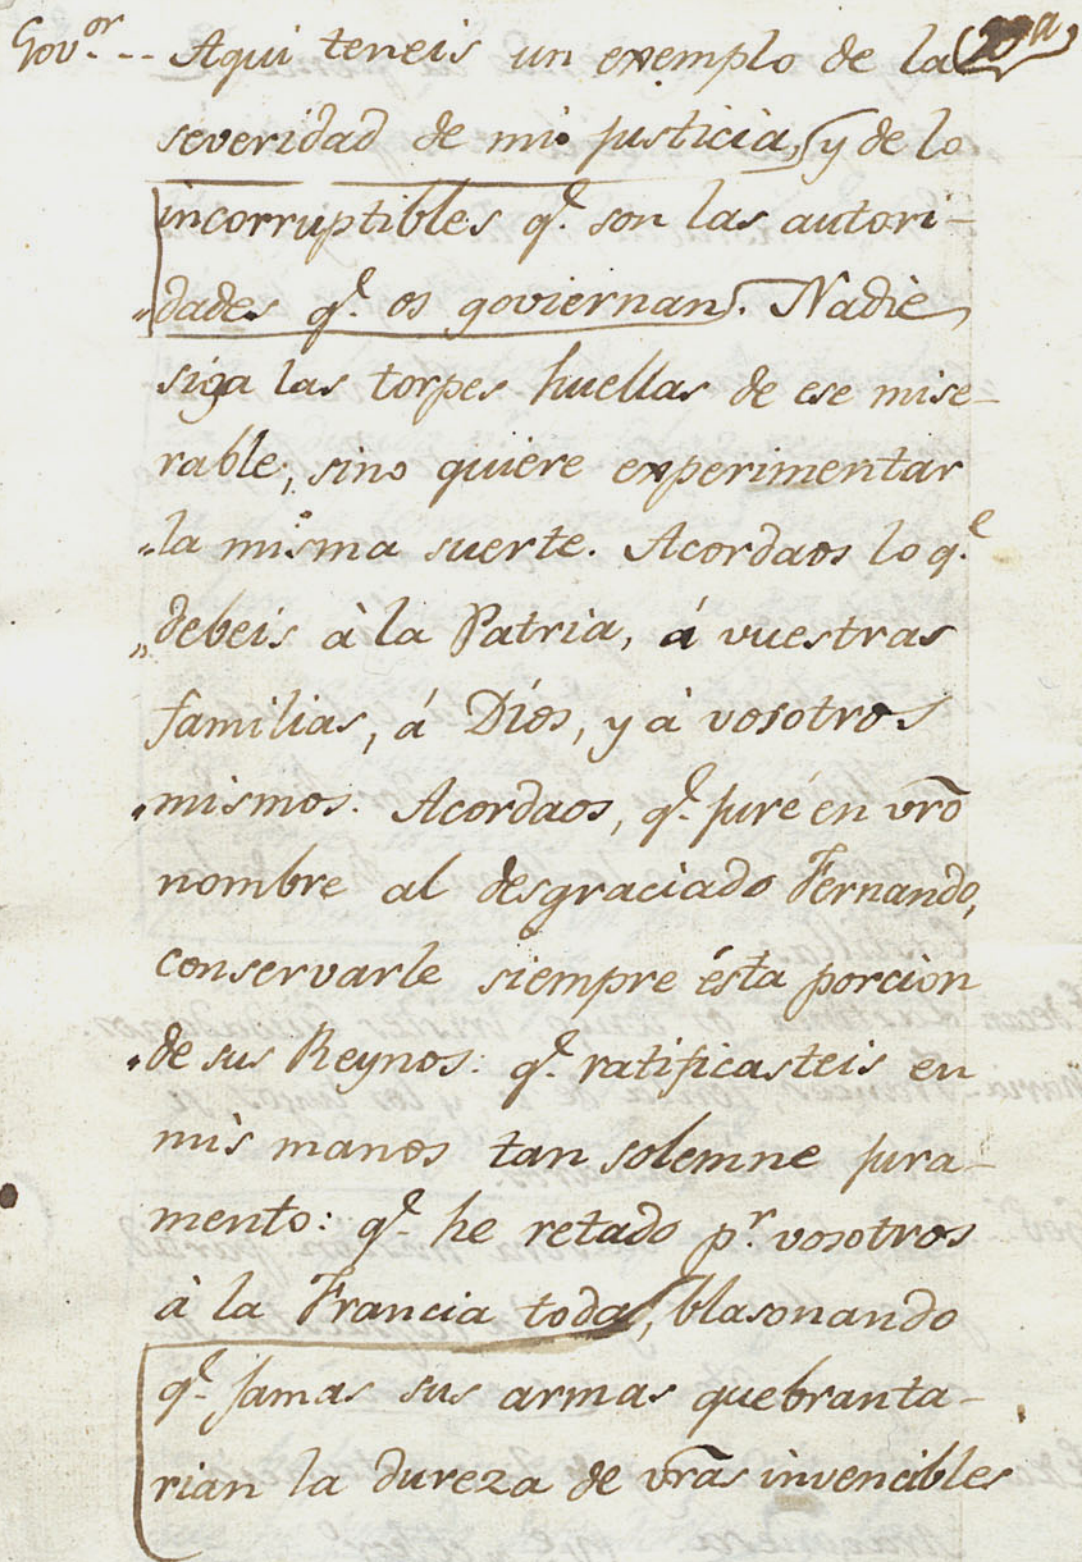 Gov.or -- Aqui teneis un exemplo de la
severidad de mi justicia, y de lo
incorruptibles q.e son las autori-
"dades q.e os goviernan. Nadie
siga las torpes huellas de ese mise-
rable, sino quiere experimentar
"la misma suerte. Acordaos lo q.e
"debeis à la Patria, á vuestras
familias, á Dios, y à vosotros
"mismos. Acordaos, q.e juré en vrõ
nombre al desgraciado Fernando,
conservarle siempre ésta porcion
"de sus Reynos: q.e ratificasteis en
mis manos tan solemne jura-
mento: q.e he retado p.r vosotros
à la Francia toda, blasonando
q.e jamas sus armas quebranta-
rian la dureza de vrãs invencibles